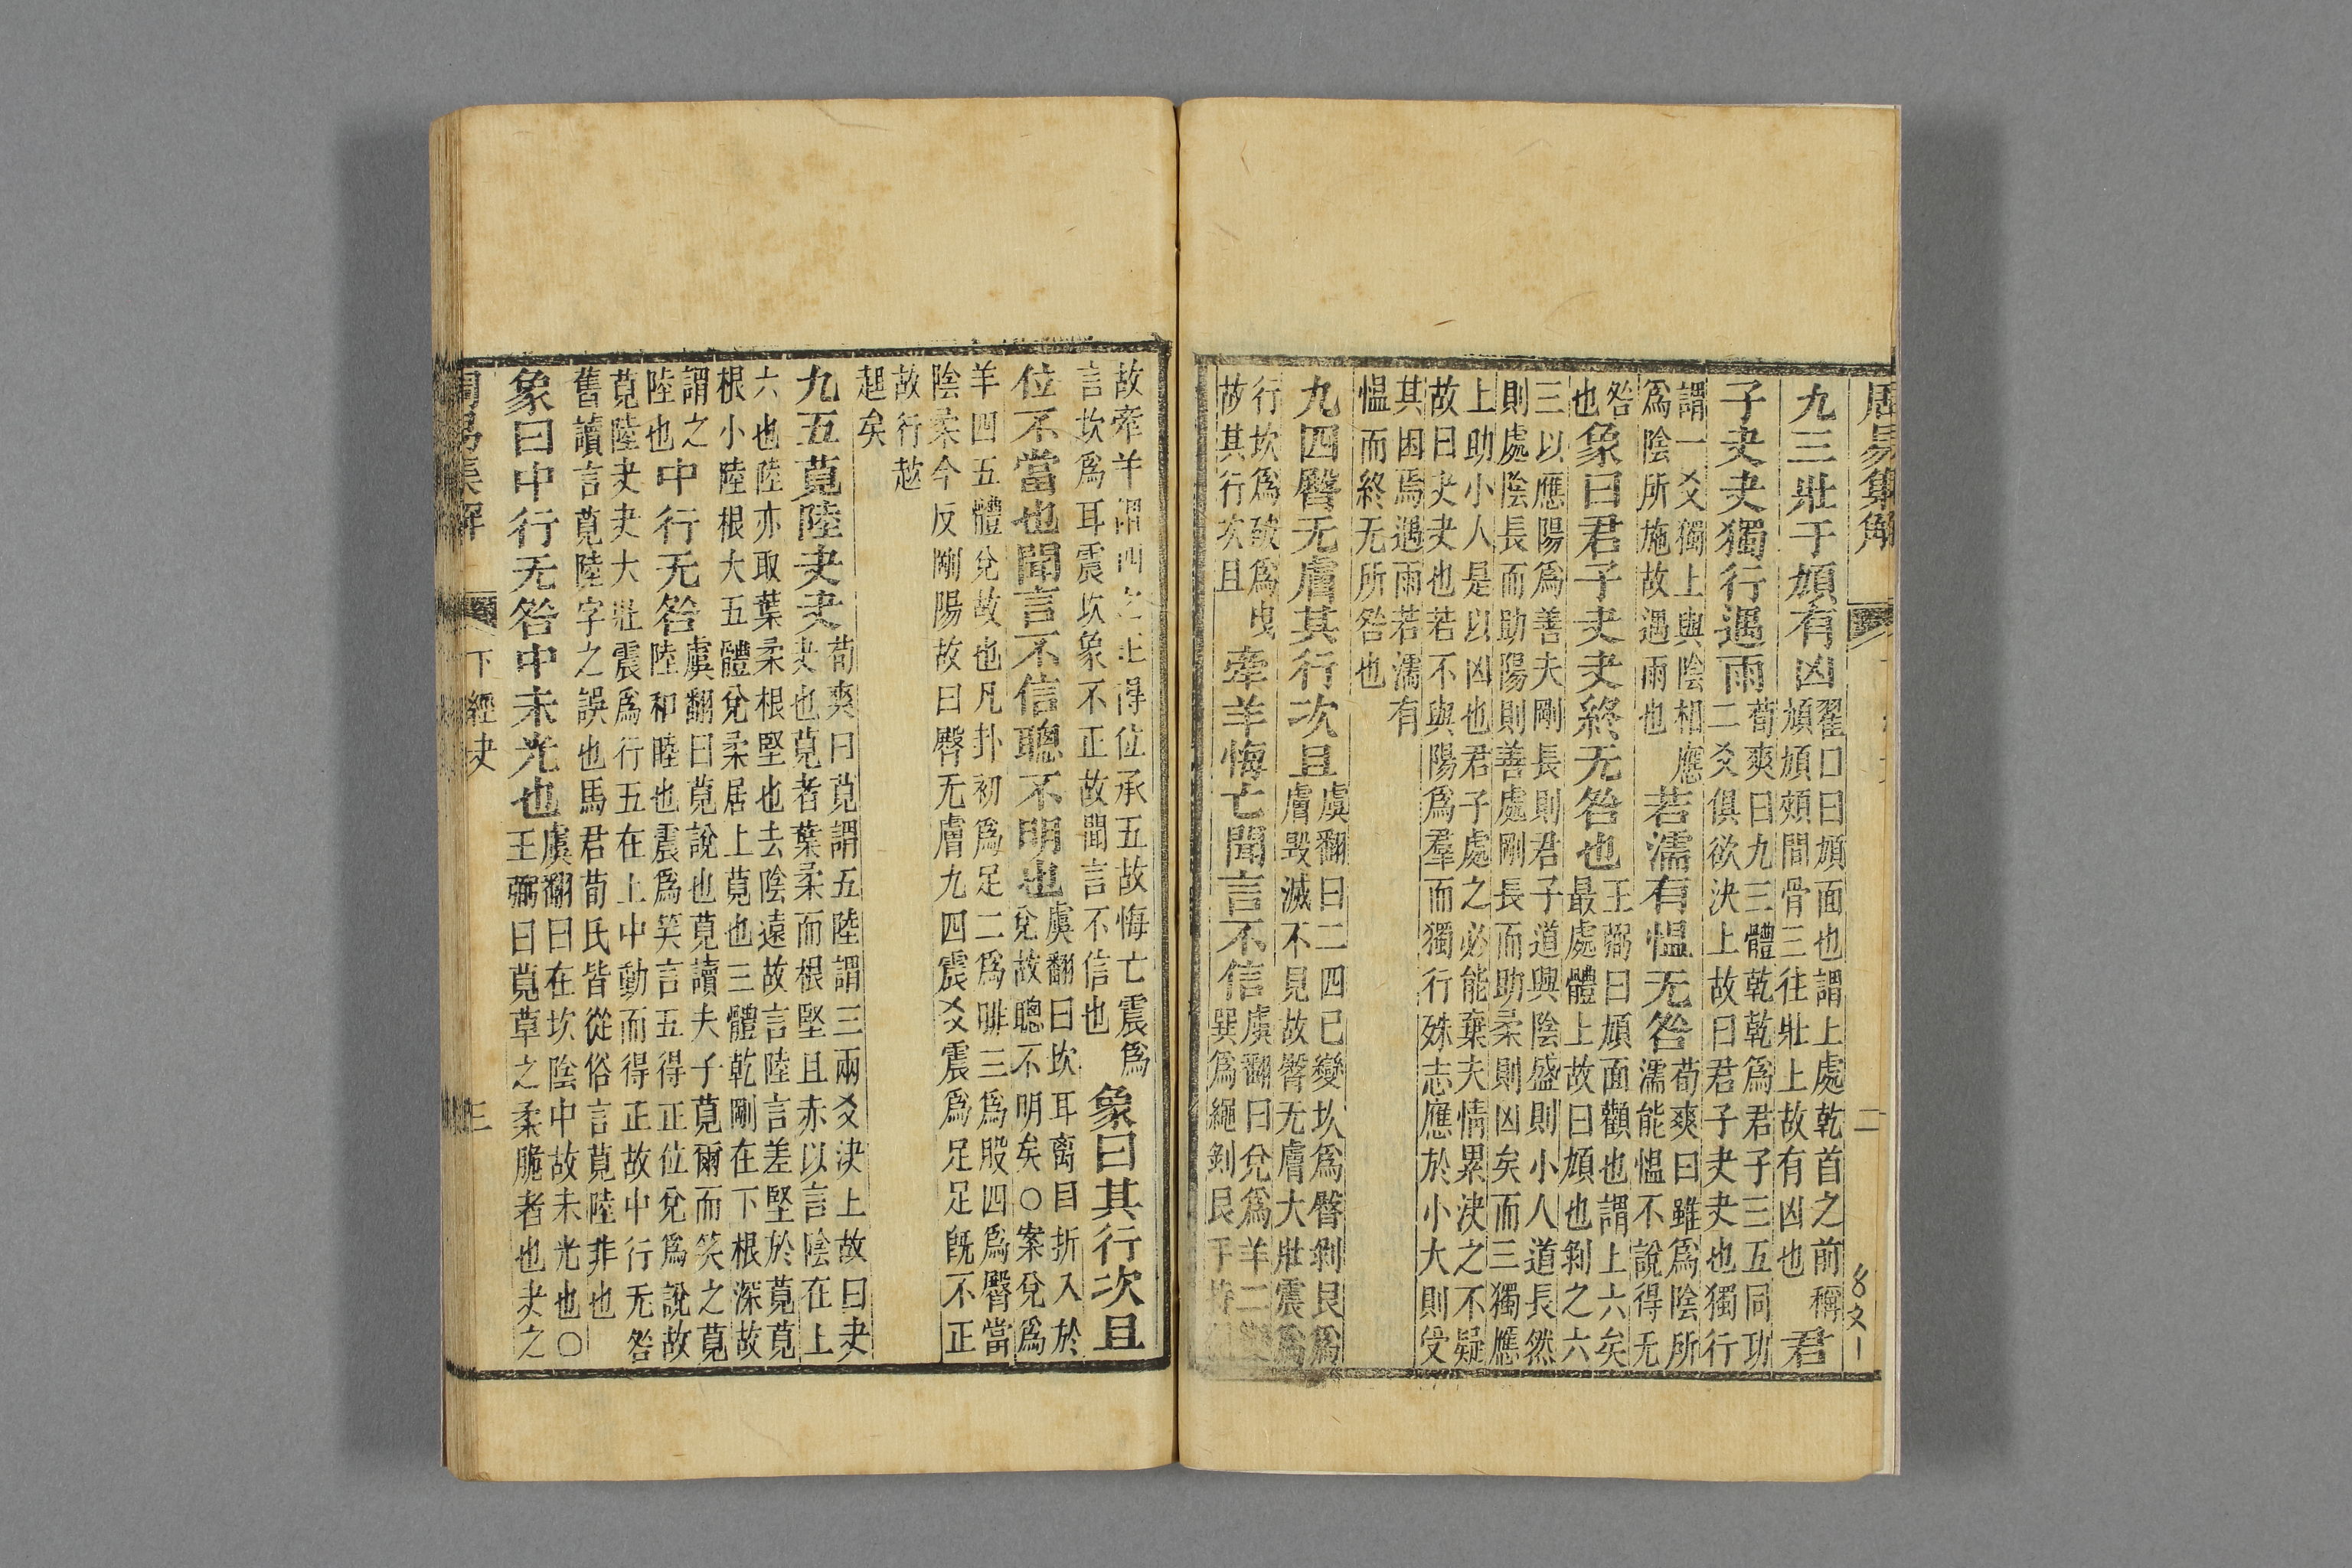 周易集解
二
九三壯于頄有凶
翟曰頄面也謂上處乾首之前稱
頄頄頰間骨三往壯上故有凶也
君
子夬夬獨行遇雨
荀爽曰九三體乾乾爲君子三五同功
二爻俱欲決上故曰君子夬夬也獨行
謂一爻獨上與陰相應
爲陰所施故遇雨也
若濡有慍无咎
荀爽曰雖爲陰所
濡能慍不說得无
咎
也
象曰君子夬夬終无咎也
王弼曰頄面顴也謂上六矣
最處體上故曰頄也剝之六
三以應陽爲善夫剛長則君子道興陰盛則小人道長然
則處陰長而助陽則善處剛長而助柔則凶矣而三獨應
上助小人是以凶也君子處之必能棄夫情累決之不疑
故曰夬夬也若不與陽爲羣而獨行殊志應於小大則受
其困焉遇雨若濡有
慍而終无所咎也
九四臀无膚其行次且
虞翻曰二四已變坎爲臀剝艮爲
膚毀滅不見故臀无膚大壯震爲
行坎爲破爲曳
故其行次且
牽羊悔亡聞言不信
虞翻曰兌爲羊二變
巽爲繩剝艮手持
故牽羊謂四之正得位承五故悔亡震爲
言坎爲耳震坎象不正故聞言不信也
象曰其行次且
位不當也聞言不信聰不明也
虞翻曰坎耳离目折入於
兌故聰不明矣○案兌爲
羊四五體兌故也凡卦初爲足二爲腓三爲股四爲臀當
陰柔今反剛陽故曰臀无膚九四震爻震爲足足旣不正
故行趑
趄矣
九五莧陸夬夬
荀爽曰莧謂五陸謂三兩爻決上故曰夬
夬也莧者葉柔而根堅且赤以言陰在上
六也陸亦取葉柔根堅也去陰遠故言陸言差堅於莧莧
根小陸根大五體兌柔居上莧也三體乾剛在下根深故
謂之
陸也
中行无咎
虞翻曰莧說也莧讀夫子莧爾而笑之莧
陸和睦也震爲笑言五得正位兌爲說故
莧陸夬夬大壯震爲行五在上中動而得正故中行无咎
舊讀言莧陸字之誤也馬君荀氏皆從俗言莧陸非也
象曰中行无咎中未光也
虞翻曰在坎陰中故未光也○
王弼曰莧草之柔脆者也夬之
周易集解
下經夬
三